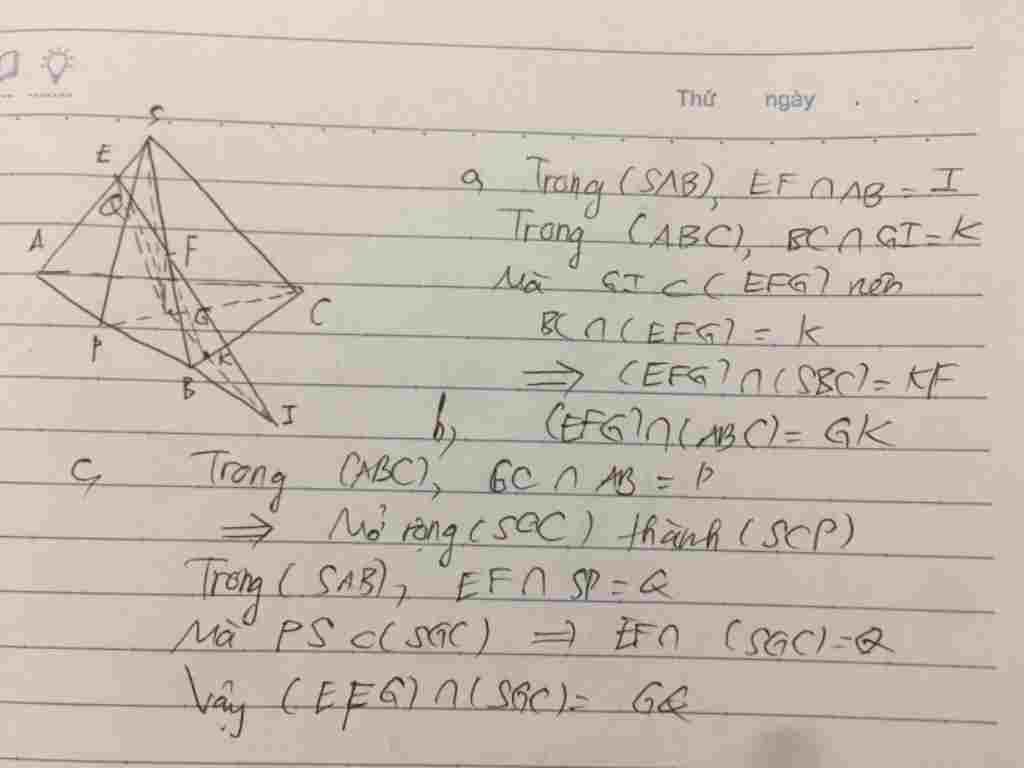 Thứ ngày . .
S
E
Q
A
F
G
C
P
K
B
I
a, Trong (SAB), EF ∩ AB = I
Trong (ABC), BC ∩ GI = K
Mà GI ⊂ (EFG) nên
BC ∩ (EFG) = K
⇒ (EFG) ∩ (SBC) = KF
b, (EFG) ∩ (ABC) = GK
c, Trong (ABC), GC ∩ AB = P
⇒ Mở rộng (SGC) thành (SCP)
Trong (SAB), EF ∩ SP = Q
Mà PS ⊂ (SGC) ⇒ EF ∩ (SGC) = Q
Vậy (EFG) ∩ (SGC) = GQ